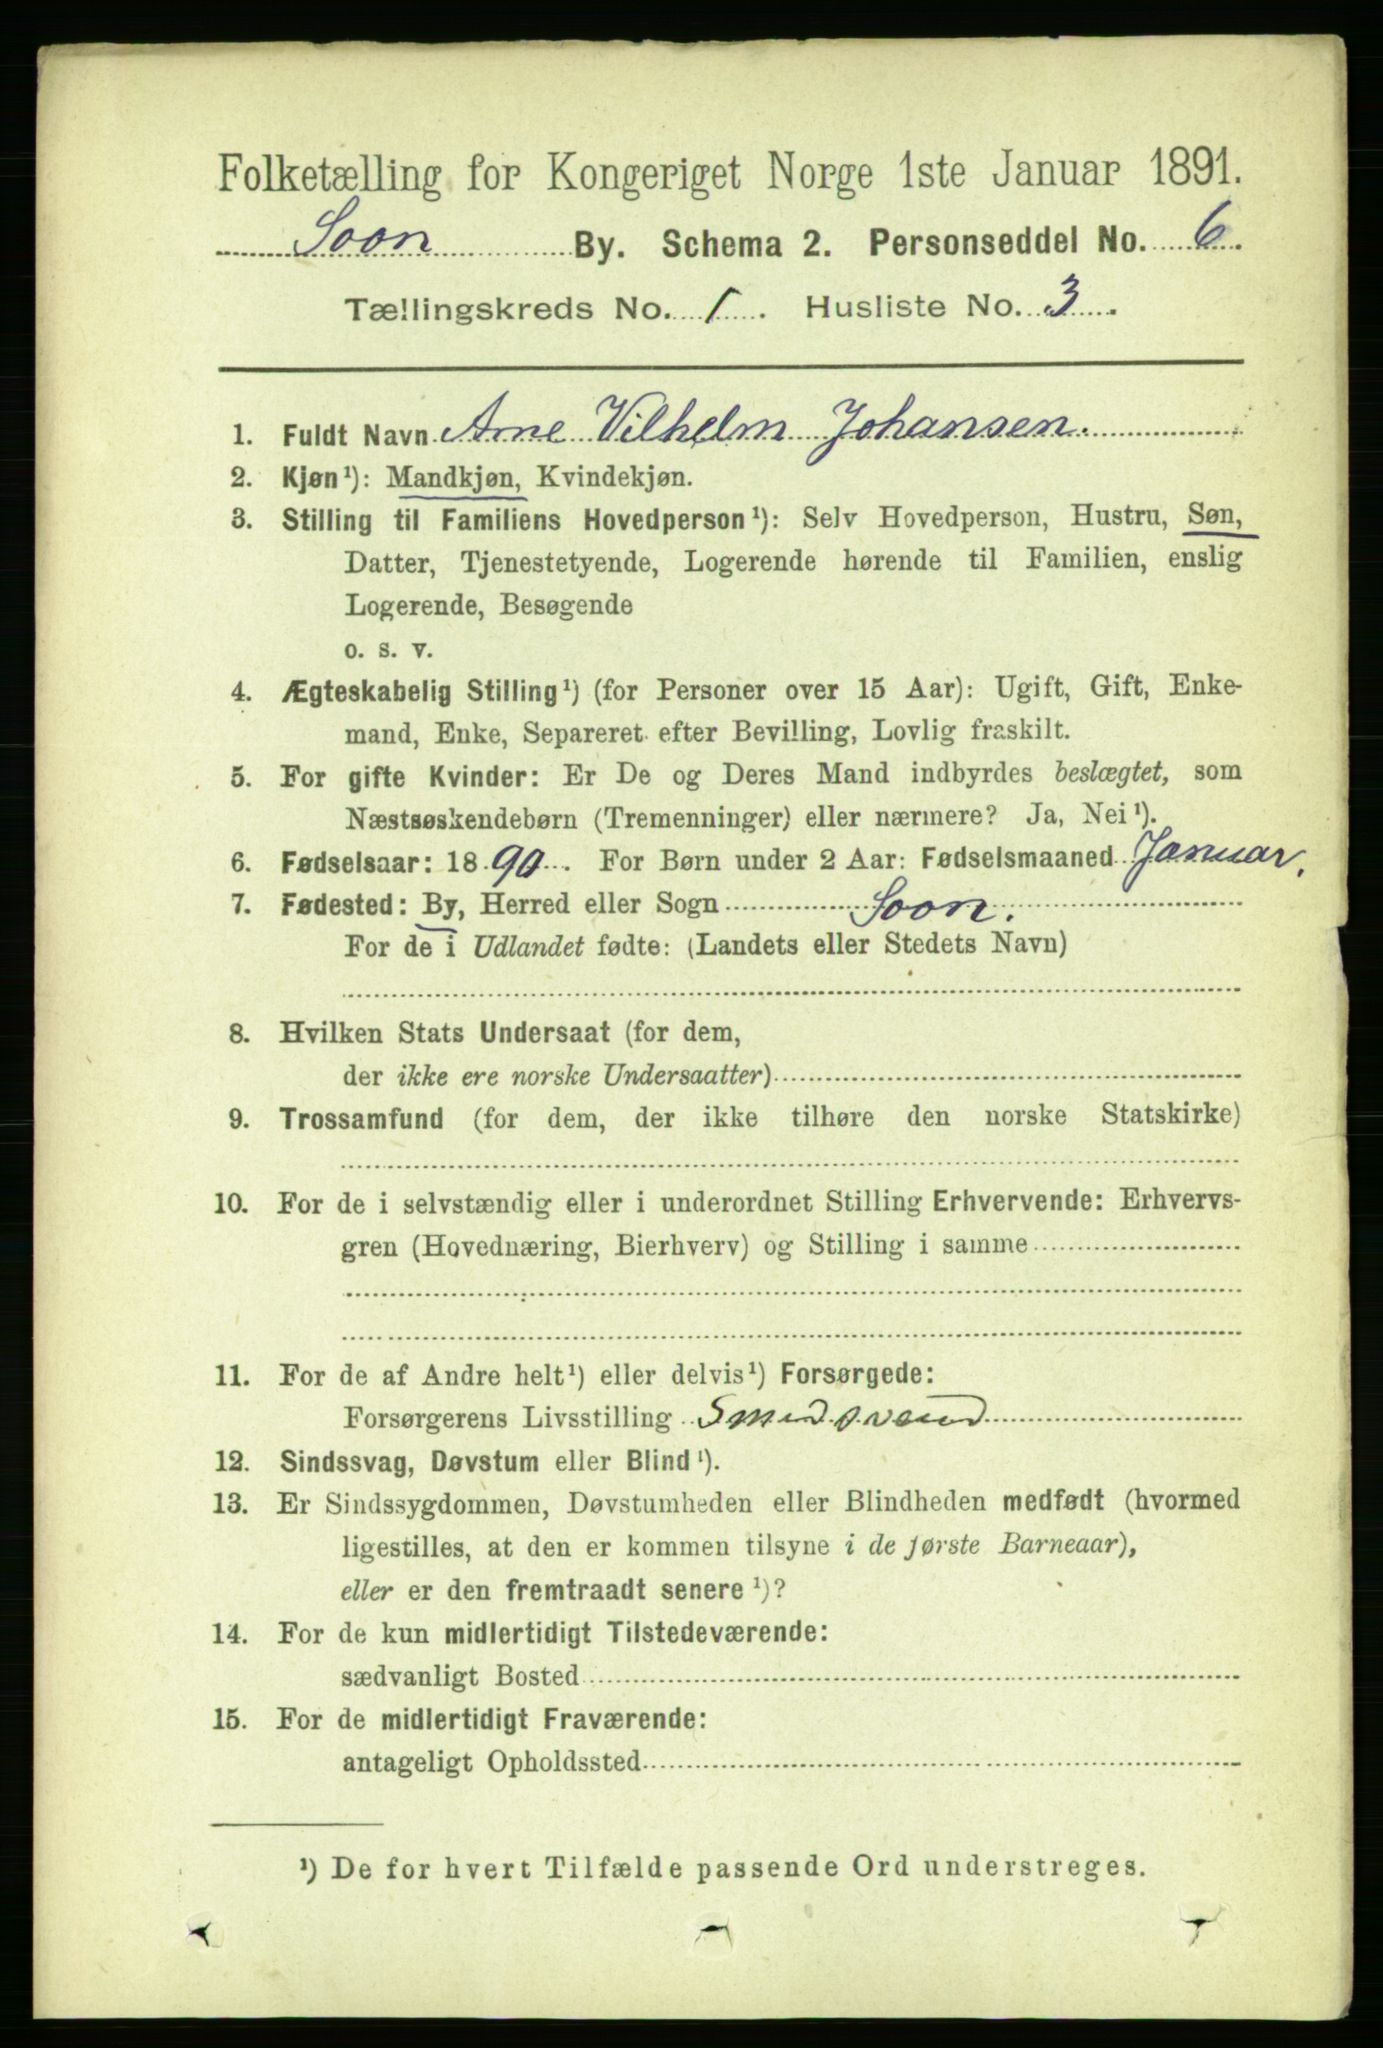 Folketælling for Kongeriget Norge 1ste Januar 1891.
Soon By. Schema 2. Personseddel No. 6.
Tællingskreds No. 1. Husliste No. 3.
1. Fuldt Navn Arne Vilhelm Johansen.
2. Kjøn¹): Mandkjøn, Kvindekjøn.
3. Stilling til Familiens Hovedperson¹): Selv Hovedperson, Hustru, Søn,
Datter, Tjenestetyende, Logerende hørende til Familien, enslig
Logerende, Besøgende
o. s. v.
4. Ægteskabelig Stilling¹) (for Personer over 15 Aar): Ugift, Gift, Enke-
mand, Enke, Separeret efter Bevilling, Lovlig fraskilt.
5. For gifte Kvinder: Er De og Deres Mand indbyrdes beslægtet, som
Næstsøskendebørn (Tremenninger) eller nærmere? Ja, Nei¹).
6. Fødselsaar: 1890. For Børn under 2 Aar: Fødselsmaaned Januar.
7. Fødested: By, Herred eller Sogn Soon.
For de i Udlandet fødte: (Landets eller Stedets Navn)
8. Hvilken Stats Undersaat (for dem,
der ikke ere norske Undersaatter)
9. Trossamfund (for dem, der ikke tilhøre den norske Statskirke)
10. For de i selvstændig eller i underordnet Stilling Erhvervende: Erhvervs-
gren (Hovednæring, Bierhverv) og Stilling i samme
11. For de af Andre helt¹) eller delvis¹) Forsørgede:
Forsørgerens Livsstilling Smedsvend
12. Sindssvag, Døvstum eller Blind¹).
13. Er Sindssygdommen, Døvstumheden eller Blindheden medfødt (hvormed
ligestilles, at den er kommen tilsyne i de første Barneaar),
eller er den fremtraadt senere¹)?
14. For de kun midlertidigt Tilstedeværende:
sædvanligt Bosted
15. For de midlertidigt Fraværende:
antageligt Opholdssted
¹) De for hvert Tilfælde passende Ord understreges.